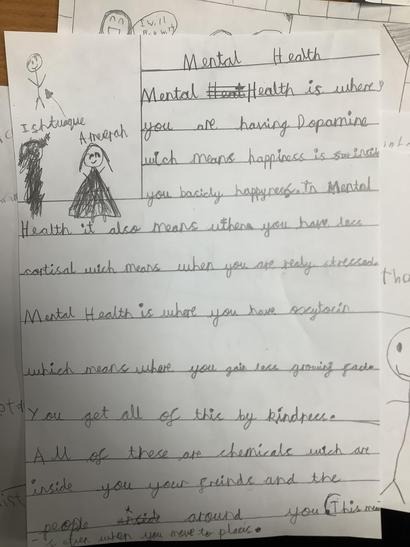 I will
Mental Health
Mental Health is where
Ishtuaque
Ameerah
you are having Dopamine
wich means happiness is inside
you basicly happyness. In Mental
Health it also means when you have less
cortisal wich means when you are realy stressed
Mental Health is where you have oxytocin
which means where you gain less growing
You get all of this by kindness.
All of these are chemicals wich are
inside you your freinds and the
people around you (This
is often when you move to places.